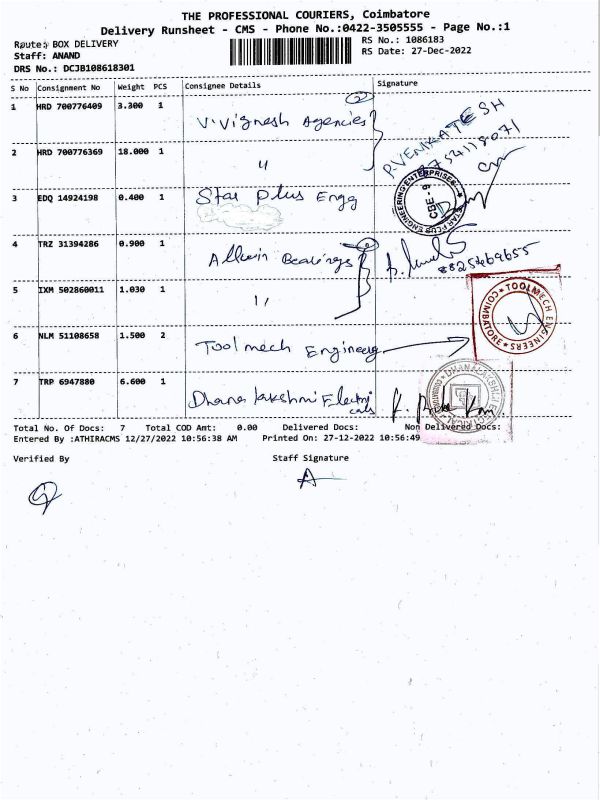 THE PROFESSIONAL COURIERS, Coimbatore
Delivery Runsheet - CMS - Phone No.:0422-3505555 - Page No.:1
Route: BOX DELIVERY
RS No.: 1086183
Staff: ANAND
RS Date: 27-Dec-2022
DRS No.: DCJB108618301
S No Consignment No Weight PCS Consignee Details Signature
1 HRD 700776409 3.300 1 V.Vignesh Agencies 2
P.VENKATESH
2 HRD 700776369 18.000 1 "
3 EDQ 14924198 0.400 1 Star Plus Engg
STAR PLUS ENGINEERING ENTERPRISES
CBE-9
4 TRZ 31394286 0.900 1 Allwin Bearings 2
8825469655
5 IXM 502860011 1.030 1 "
TOOLMECH ENGINEERS
COIMBATORE
6 NLM 51108658 1.500 2 Toolmech Engineerg
7 TRP 6947880 6.600 1 Dhana lakshmi Electri
cals
DHANALAKSHMI ELECTRICAL
Total No. Of Docs: 7 Total COD Amt: 0.00 Delivered Docs: Non Delivered Docs:
Entered By :ATHIRACMS 12/27/2022 10:56:38 AM Printed On: 27-12-2022 10:56:49
Verified By Staff Signature
A